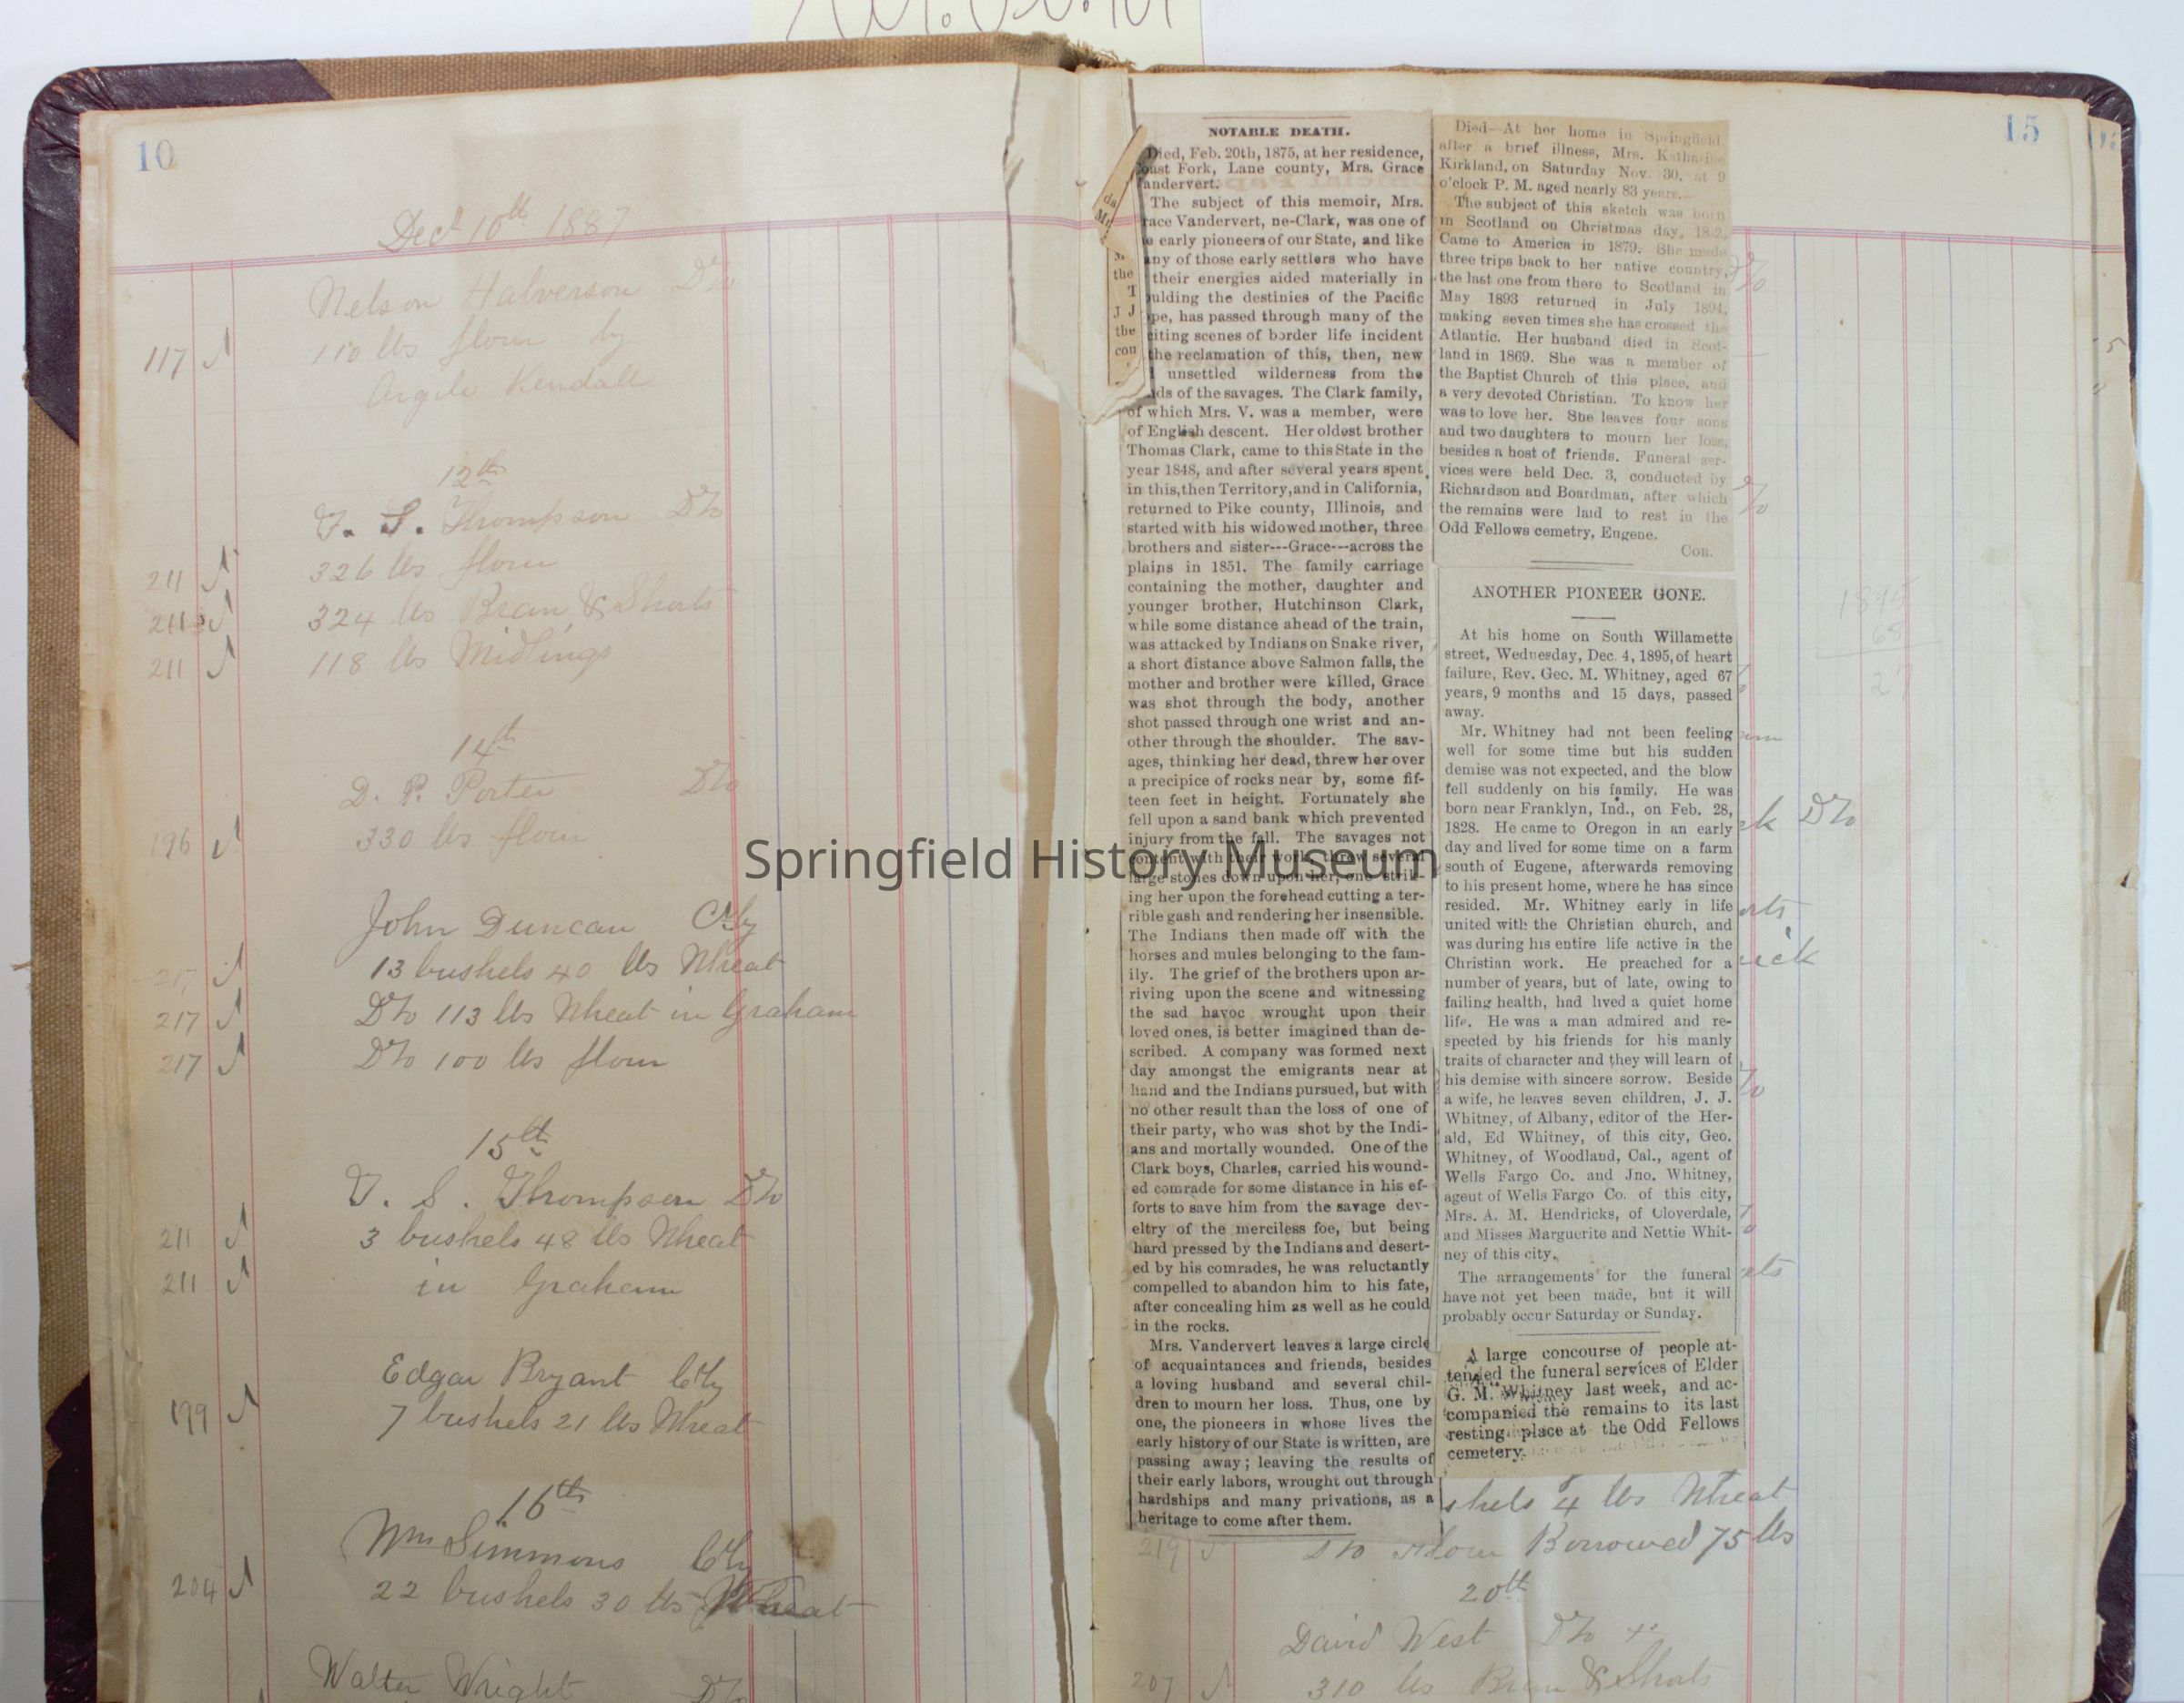 10
Dec 10th 1887
Nelson Halverson Dr to
117 110 lbs flour by
Argile Kendall
12th
T. S. Thompson Dr to
211 326 lbs flour
211 324 lbs Bran & Shorts
211 118 lbs Midlings
14th
D. P. Porter Dr to
196 330 lbs flour
John Duncan Cr by
217 13 bushels 40 lbs Wheat
217 Dr to 113 lbs Wheat in Graham
217 Dr to 100 lbs flour
15th
T. S. Thompson Dr to
211 3 bushels 48 lbs Wheat
211 in Graham
Edgar Bryant Cr by
199 7 bushels 21 lbs Wheat
16th
Wm Simmons Cr by
204 22 bushels 30 lbs Wheat
Walter Wright Dr to
Springfield History Museum
15
da
Mr.
the
T
J J
the
con
NOTABLE DEATH.
Died, Feb. 20th, 1875, at her residence,
oast Fork, Lane county, Mrs. Grace
andervert.
The subject of this memoir, Mrs.
race Vandervert, ne-Clark, was one of
e early pioneers of our State, and like
any of those early settlers who have
their energies aided materially in
oulding the destinies of the Pacific
ope, has passed through many of the
citing scenes of border life incident
the reclamation of this, then, new
unsettled wilderness from the
ds of the savages. The Clark family,
of which Mrs. V. was a member, were
of English descent. Her oldest brother
Thomas Clark, came to this State in the
year 1848, and after several years spent
in this, then Territory, and in California,
returned to Pike county, Illinois, and
started with his widowed mother, three
brothers and sister---Grace---across the
plains in 1851. The family carriage
containing the mother, daughter and
younger brother, Hutchinson Clark,
while some distance ahead of the train,
was attacked by Indians on Snake river,
a short distance above Salmon falls, the
mother and brother were killed, Grace
was shot through the body, another
shot passed through one wrist and an-
other through the shoulder. The sav-
ages, thinking her dead, threw her over
a precipice of rocks near by, some fif-
teen feet in height. Fortunately she
fell upon a sand bank which prevented
injury from the fall. The savages not
content with their work, threw several
large stones down upon her, one strik-
ing her upon the forehead cutting a ter-
rible gash and rendering her insensible.
The Indians then made off with the
horses and mules belonging to the fam-
ily. The grief of the brothers upon ar-
riving upon the scene and witnessing
the sad havoc wrought upon their
loved ones, is better imagined than de-
scribed. A company was formed next
day amongst the emigrants near at
hand and the Indians pursued, but with
no other result than the loss of one of
their party, who was shot by the Indi-
ans and mortally wounded. One of the
Clark boys, Charles, carried his wound-
ed comrade for some distance in his ef-
forts to save him from the savage dev-
eltry of the merciless foe, but being
hard pressed by the Indians and desert-
ed by his comrades, he was reluctantly
compelled to abandon him to his fate,
after concealing him as well as he could
in the rocks.
Mrs. Vandervert leaves a large circle
of acquaintances and friends, besides
a loving husband and several chil-
dren to mourn her loss. Thus, one by
one, the pioneers in whose lives the
early history of our State is written, are
passing away; leaving the results of
their early labors, wrought out through
hardships and many privations, as a
heritage to come after them.
Died—At her home in Springfield,
after a brief illness, Mrs. Katharine
Kirkland, on Saturday Nov. 30, at 9
o'clock P. M. aged nearly 83 years.
The subject of this sketch was born
in Scotland on Christmas day, 1812.
Came to America in 1879. She made
three trips back to her native country,
the last one from there to Scotland in
May 1893 returned in July 1894,
making seven times she has crossed the
Atlantic. Her husband died in Scot-
land in 1869. She was a member of
the Baptist Church of this place, and
a very devoted Christian. To know her
was to love her. She leaves four sons
and two daughters to mourn her loss,
besides a host of friends. Funeral ser-
vices were held Dec. 3, conducted by
Richardson and Boardman, after which
the remains were laid to rest in the
Odd Fellows cemetry, Eugene.
COR.
ANOTHER PIONEER GONE.
At his home on South Willamette
street, Wednesday, Dec. 4, 1895, of heart
failure, Rev. Geo. M. Whitney, aged 67
years, 9 months and 15 days, passed
away.
Mr. Whitney had not been feeling
well for some time but his sudden
demise was not expected, and the blow
fell suddenly on his family. He was
born near Franklyn, Ind., on Feb. 28,
1828. He came to Oregon in an early
day and lived for some time on a farm
south of Eugene, afterwards removing
to his present home, where he has since
resided. Mr. Whitney early in life
united with the Christian church, and
was during his entire life active in the
Christian work. He preached for a
number of years, but of late, owing to
failing health, had lived a quiet home
life. He was a man admired and re-
spected by his friends for his manly
traits of character and they will learn of
his demise with sincere sorrow. Beside
a wife, he leaves seven children, J. J.
Whitney, of Albany, editor of the Her-
ald, Ed Whitney, of this city, Geo.
Whitney, of Woodland, Cal., agent of
Wells Fargo Co. and Jno. Whitney,
agent of Wells Fargo Co. of this city,
Mrs. A. M. Hendricks, of Cloverdale,
and Misses Marguerite and Nettie Whit-
ney of this city.
The arrangements for the funeral
have not yet been made, but it will
probably occur Saturday or Sunday.
A large concourse of people at-
tended the funeral services of Elder
G. M. Whitney last week, and ac-
companied the remains to its last
resting place at the Odd Fellows
cemetery.
1895
68
27
ck Dr to
shels 4 lbs Wheat
219 Dr to flour Borrowed 75 lbs
20th
David West Dr to
207 310 lbs Bran & Shorts